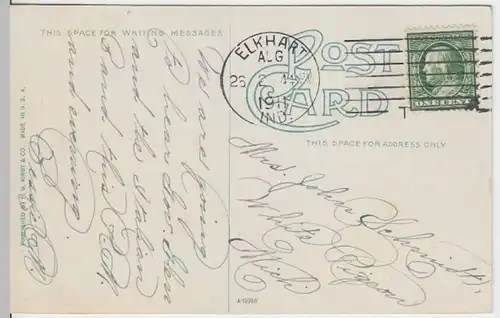 THIS SPACE FOR WRITING MESSAGES
We are going
to hear Gov.
and the Italian
Band this P.M.
and evening.
Bessie
PUBLISHED BY H. H. HIRST & CO. MADE IN U.S.A.
POST
CARD
ELKHART
AUG
26
2
1911
IND.
ONE CENT
T
THIS SPACE FOR ADDRESS ONLY
Mrs. John Schmidt,
White Pigeon
Mich.